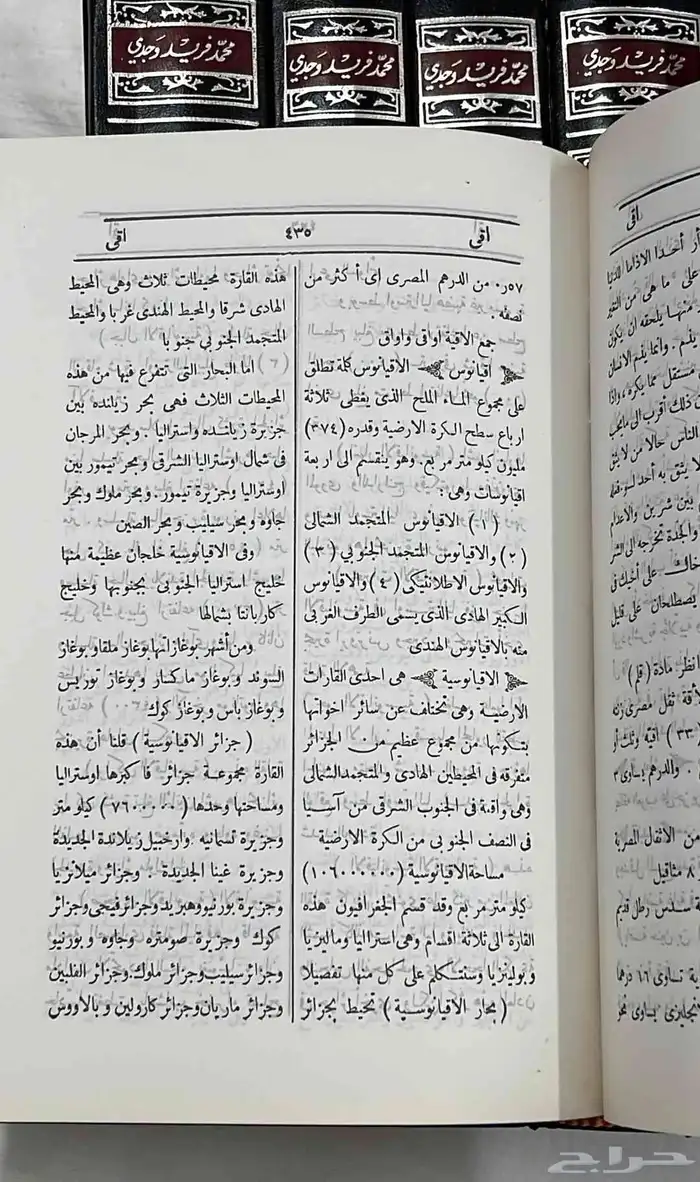 محمد فريد وجدي
محمد فريد وجدي
محمد فريد وجدي
محمد فريد وجدي
اقى
٤٣٥
اقى
٠٫٥٧ من الدرهم المصرى اى أكثر من
نصفه .
جمع الاقية أواق وأواقى
أقيانوس الاقيانوس كلمة تطلق
على مجموع الماء الملح الذى يغطى ثلاثة
ارباع سطح الكرة الارضية وقدره (٣٧٤)
مليون كيلو متر مربع . وهو ينقسم الى اربعة
اقيانوسات وهى :
(١) الاقيانوس المتجمد الشمالى
(٢) والاقيانوس المتجمد الجنوبي (٣)
والاقيانوس الاطلانتيكى (٤) والاقيانوس
الكبير الهادى الذى يسمى الطرف الغربى
منه بالاقيانوس الهندى
الاقيانوسية هى احدى القارات
الارضية وهى تختلف عن سائر اخواتها
بتكونها من مجموع عظيم من الجزائر
متفرقة فى المحيطين الهادى والمتجمد الشمالى
وهى واقعة فى الجنوب الشرقى من آسيا
فى النصف الجنوبى من الكرة الارضية
مساحة الاقيانوسية (١٠٦٠٠٠٠٠٠)
كيلو متر مربع وقد قسم الجغرافيون هذه
القارة الى ثلاثة اقسام وهى استراليا وماليزيا
وبولينزيا وسنتكلم على كل منها تفصيلا
( بحار الاقيانوسية ) تحيط بجزائر
هذه القارة محيطات ثلاث وهى المحيط
الهادى شرقا والمحيط الهندى غربا والمحيط
المتجمد الجنوبي جنوبا
اما البحار التى تتفرع فيها من هذه
المحيطات الثلاث فهى بحر زيلانده بين
جزيرة زيلنده واستراليا . وبحر المرجان
فى شمال اوستراليا الشرقى وبحر تيمور بين
اوستراليا وجزيرة تيمور . وبحر ملوك وبحر
جاوه وبحر سيليب وبحر الصين
وفى الاقيانوسية خلجان عظيمة منها
خليج استراليا الجنوبى بجنوبها وخليج
كارباتنا بشمالها
ومن أشهر بوغازاتها بوغاز ملقا وبوغاز
السوند وبوغاز ماكسار وبوغاز توريس
وبوغاز باس وبوغاز كوك
( جزائر الاقيانوسية ) قلنا أن هذه
القارة مجموعة جزائر فاكبرها اوستراليا
ومساحتها وحدها (٧٦٠٠٠٠٠) كيلو متر
وجزيرة تسمانيه وارخبيل زيلاندة الجديدة
وجزيرة غينا الجديدة . وجزائر ميلانزيا
وجزيرة بورنيو وهبريد وجزائر فيجى وجزائر
كوك وجزيرة صومتره وجاوه وبورنيو
وجزائر سيليب وجزائر ملوك وجزائر الفلبين
وجزائر ماريان وجزائر كارولين وبالاووش
اقى
أر أحدا الاذاما للدنيا
على ما هى من التغير
منها يلحقه ان يكون
يقدم . وانما يقدم الانسان
مستقل مما يكره ، واذا
ذلك أقرب الى مايحب
الناس حالا من لا يثق
لا يثق به أحد لسوء فعله
بين شرين والاعدام
والجدة تخرجه الى الشر
خالك على أخيك فى
يصطلحان على قليل
انظر مادة (قلم)
قة ثقل مصرى زنته
(٣٣) اقية وثلث أو
. والدرهم يساوى ٣
من الأثقال المصرية
٨ مثاقيل
ة سدس رطل قديم
ة تساوى ١٦ درهما
الانجليزى يساوى نحو
حراج